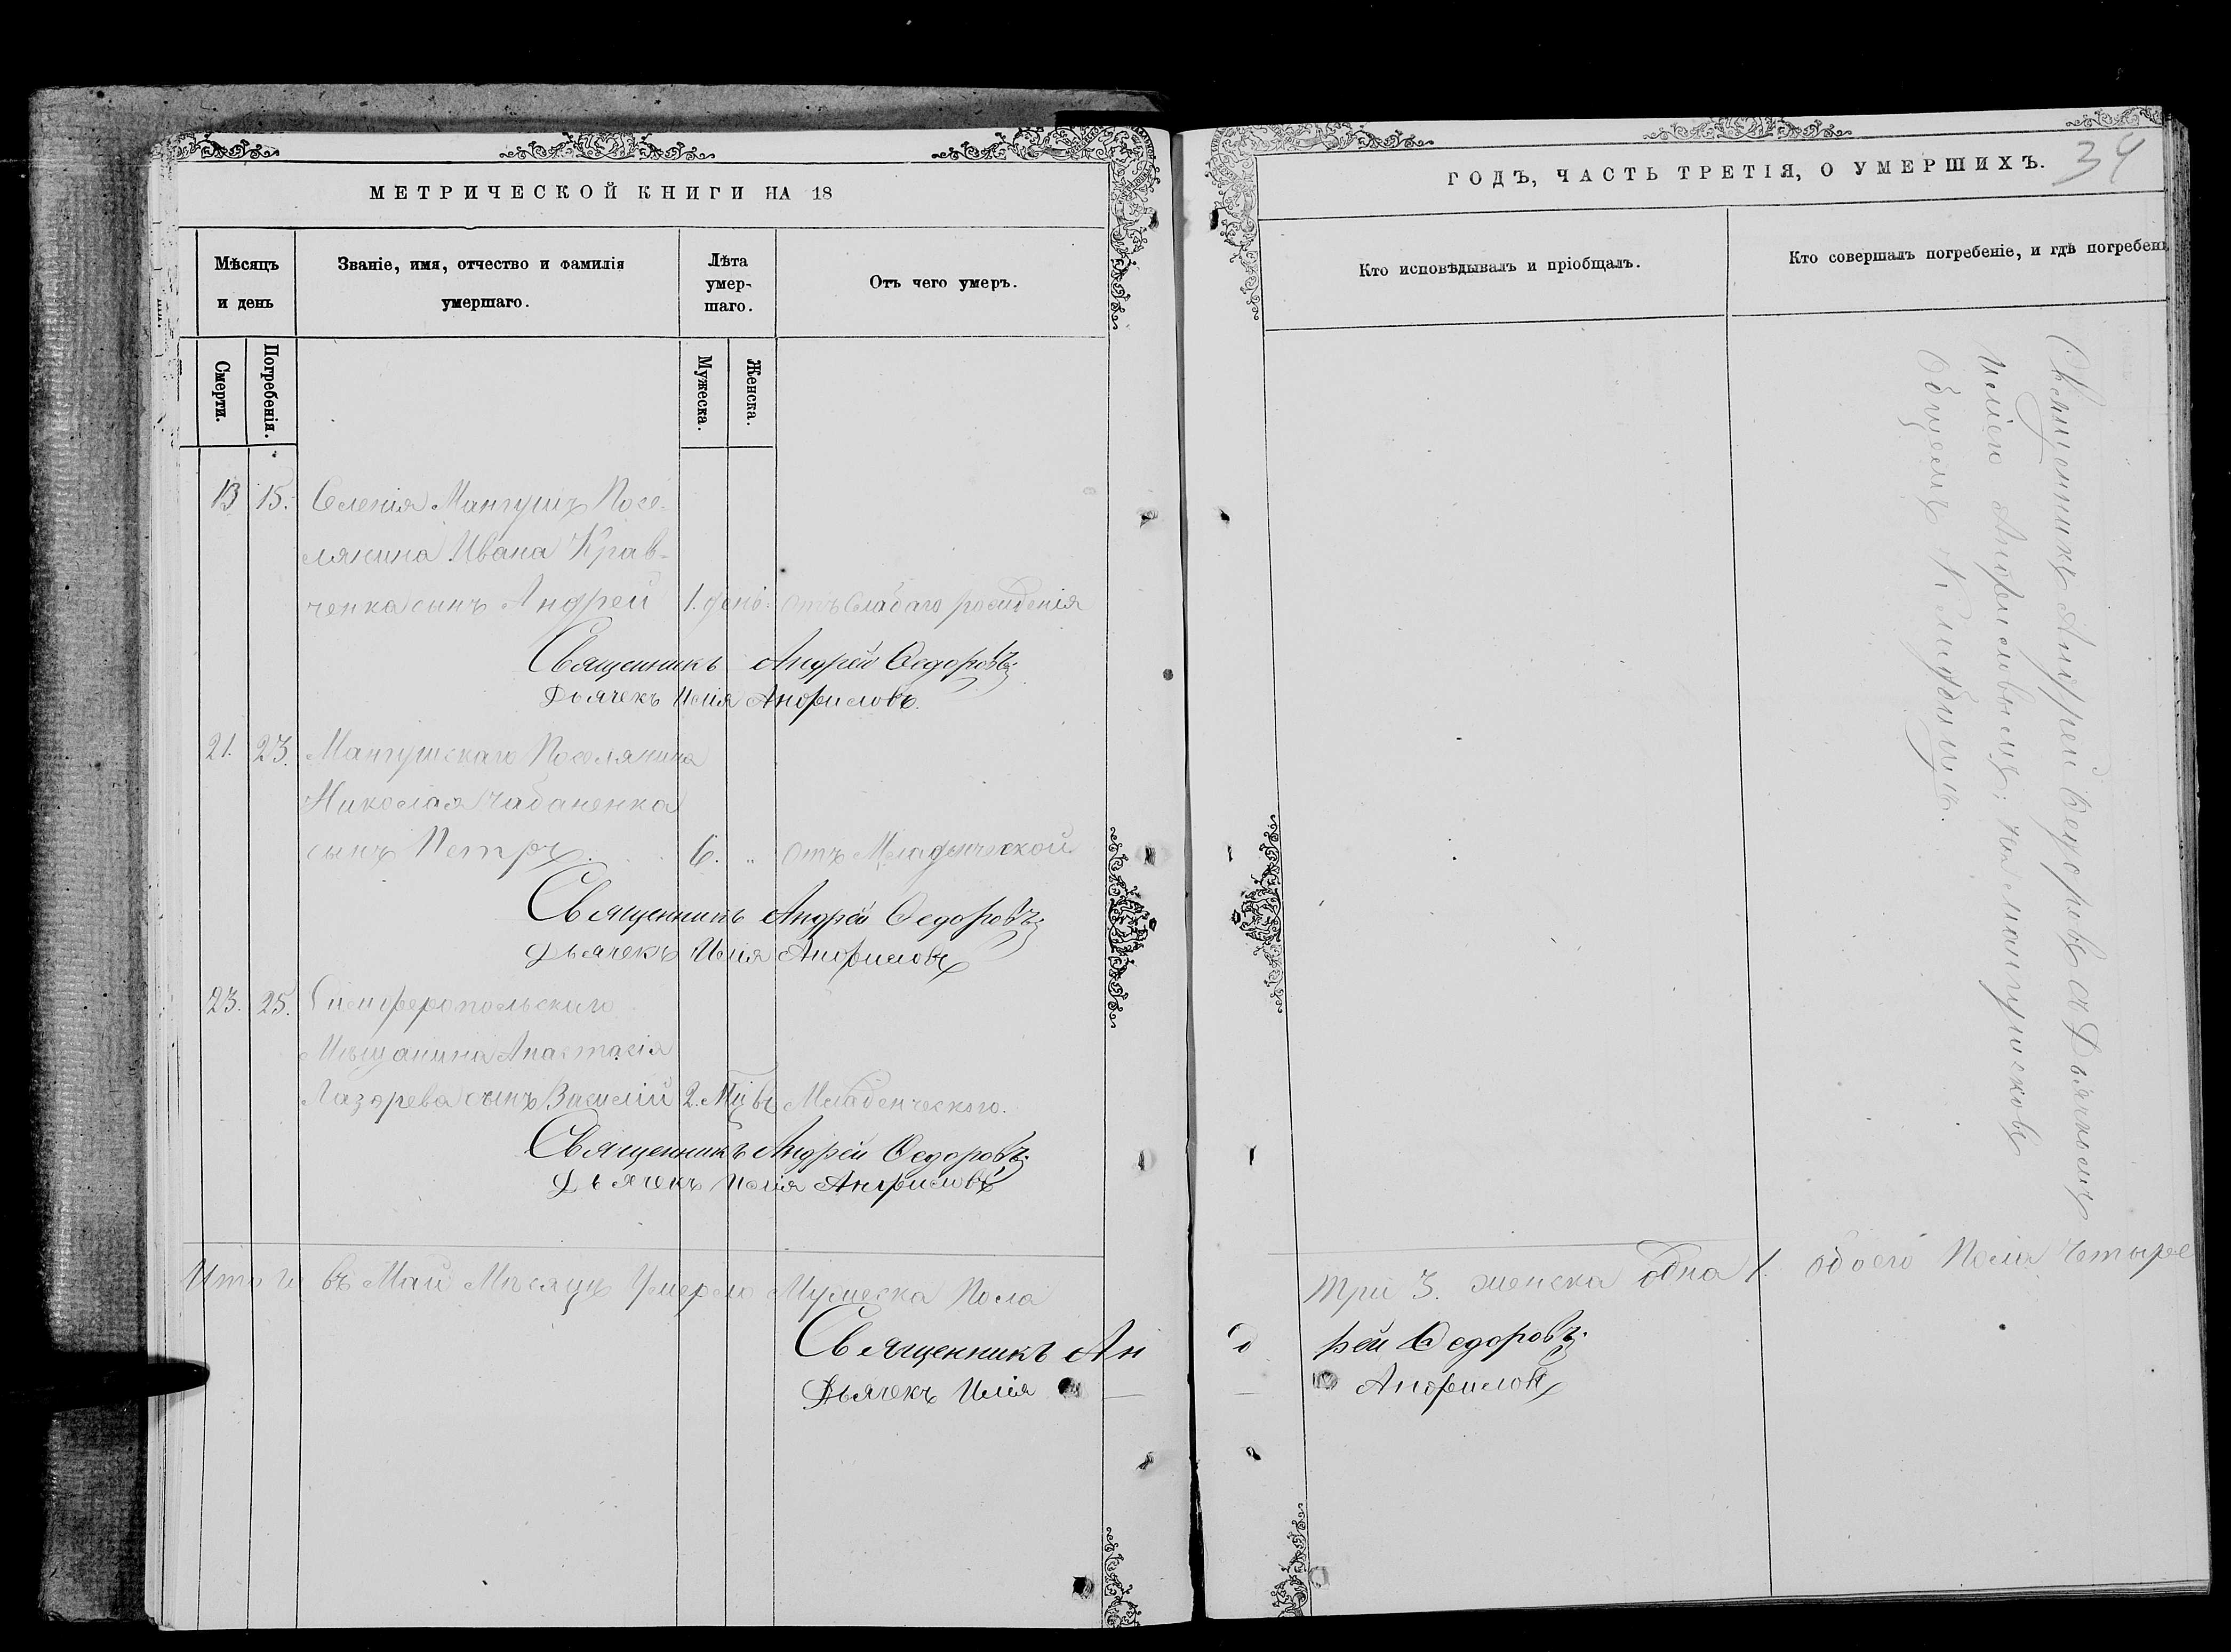 МЕТРИЧЕСКОЙ КНИГИ НА 18
Мѣсяцъ
и день
Званіе, имя, отчество и фамилія
умершаго.
Лѣта
умер-
шаго.
Отъ чего умеръ.
Смерти.
Погребенія.
Мужеска.
Женска.
13 15. Селенія Мангушъ Посе-
лянина Ивана Крав-
ченка сынъ Андрей 1. день. отъ Слабаго рожденія
Священникъ Андрей Ѳедоровъ
Дьячекъ Илія Анфиловъ.
21. 23. Мангушскаго Поселянина
Николая Чабаненка
сынъ Петръ. 6. „ Отъ Младенческой
Священникъ Андрей Ѳедоровъ
Дьячекъ Илія Анфиловъ
23. 25. Симферопольскаго
Мѣщанина Анастасія
Лазарева сынъ Василій 2. Мцвъ Младенческого.
Священникъ Андрей Ѳедоровъ
Дьячекъ Илія Анфиловъ
Итого въ Май Мѣсяцъ Умерло Мужеска Пола
Священникъ Ан
Дьячекъ Илія
ГОДЪ, ЧАСТЬ ТРЕТІЯ, О УМЕРШИХЪ. 34
Кто исповѣдывалъ и пріобщалъ.
Кто совершалъ погребеніе, и гдѣ погребены
Священникъ Андрей Ѳедоровъ съ Дьячкомъ
Иліею Анфиловымъ; на мангушскомъ
Общемъ Кладбищѣ.
три 3. женска одна 1. обоего Пола Четыре
д рей Ѳедоровъ
Анфиловъ